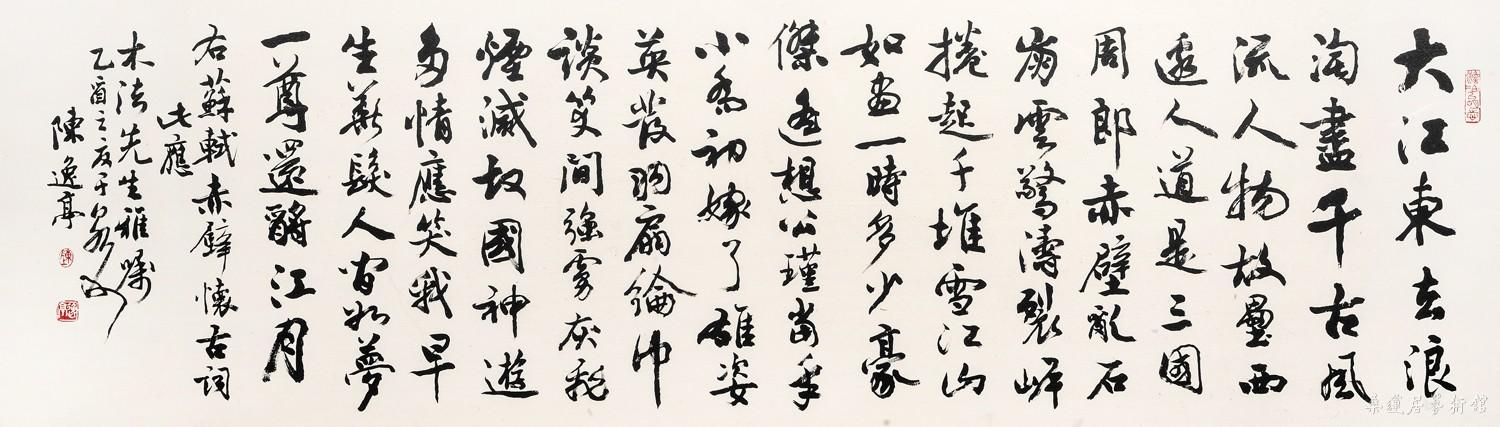 大江東去浪
淘盡千古風
流人物故壘西
邊人道是三國
周郎赤壁亂石
崩雲驚濤裂岸
捲起千堆雪江山
如畫一時多少豪
傑遙想公瑾當年
小喬初嫁了雄姿
英發羽扇綸巾
談笑間強虜灰飛
煙滅故國神遊
多情應笑我早
生華髮人間如夢
一尊還酹江月
右蘇軾赤壁懷古詞
此應
木法先生雅囑
乙酉之夏于
陳逸亭
居藝術館